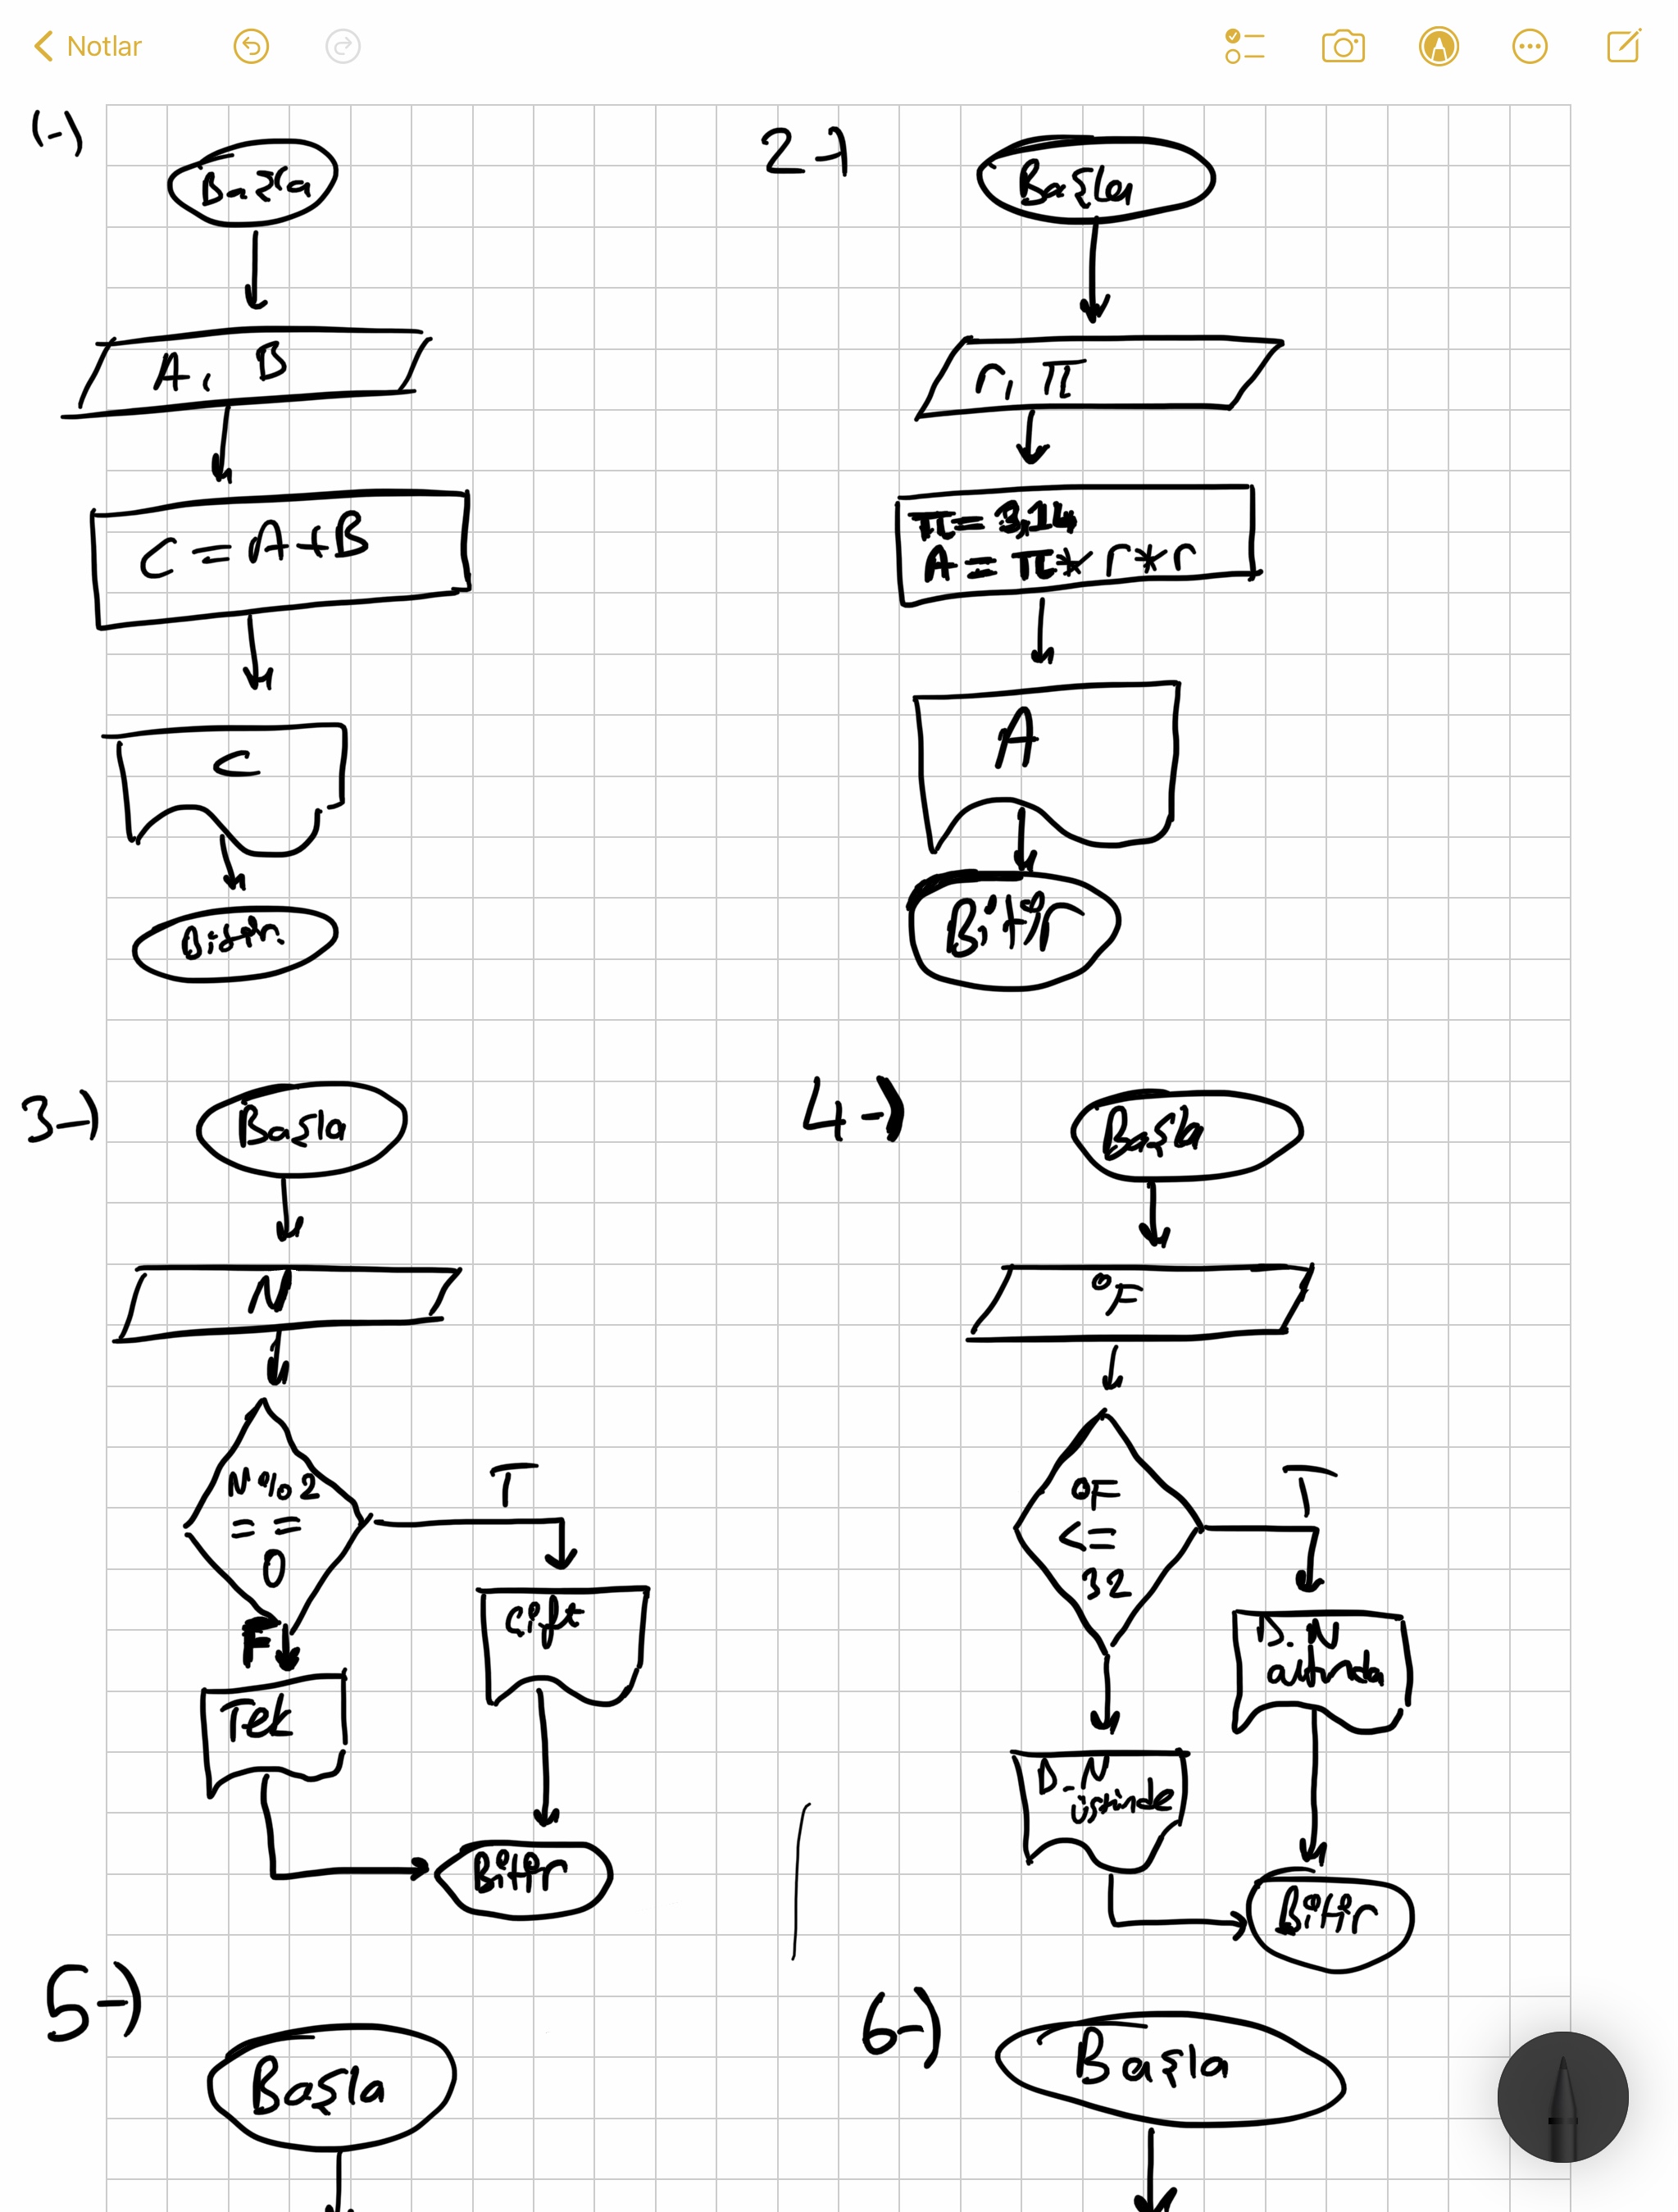 Notlar
1-)
Başla
A, B
C = A+B
C
Bitir
2-)
Başla
r, π
π = 3,14
A = π * r * r
A
Bitir
3-)
Başla
N
N % 2
= =
0
T
F
Çift
Tek
Bitir
4-)
Başla
°F
°F
<=
32
T
D.N
altında
D.N
üstünde
Bitir
5-)
Başla
6-)
Başla